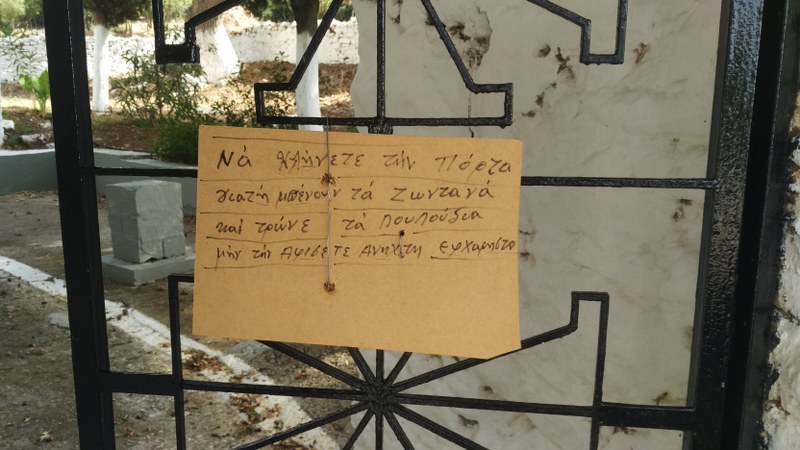 Νά κλήνετε τήν Πόρτα
γιατή μπένουν τά Ζωντανά
και τρώνε τά Πουλούδια
μήν τήν Αφισετε Ανηχτη Εφχαρηστο